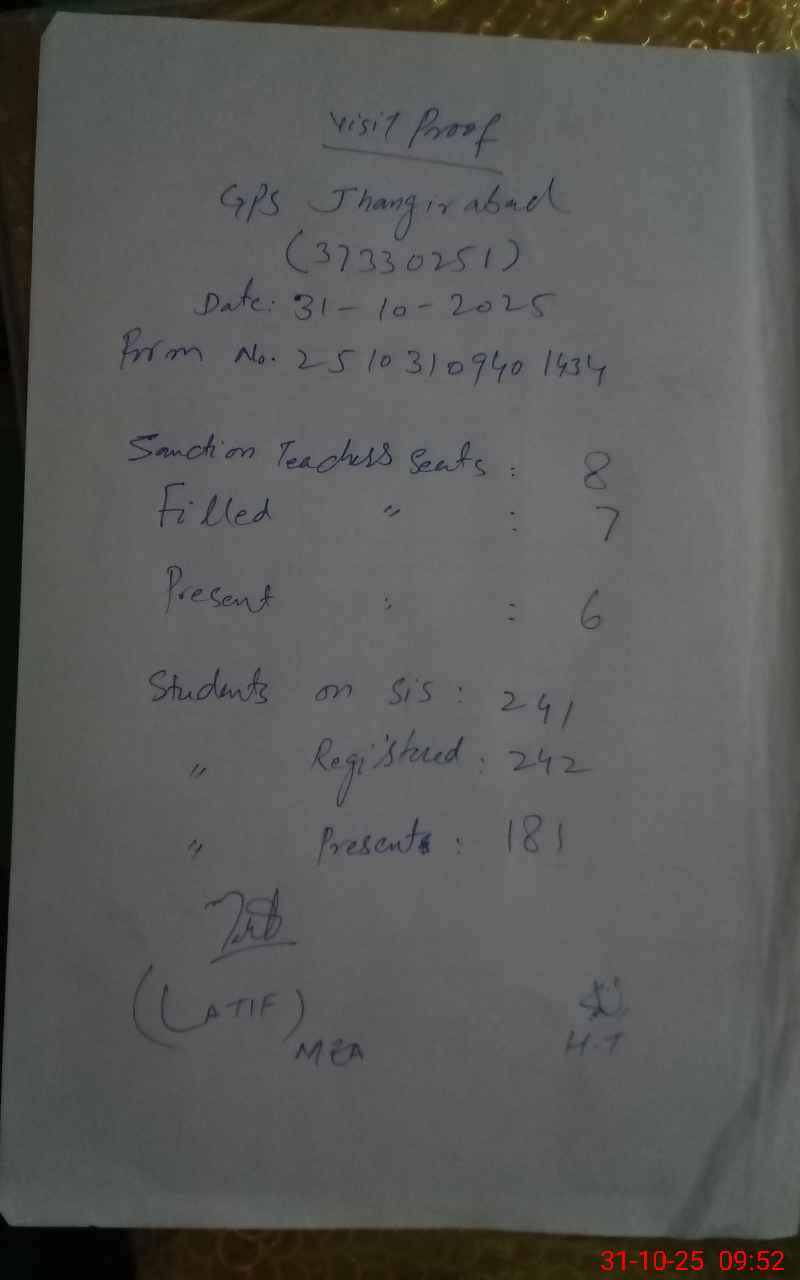 Visit Proof
GPS Jhangirabad
(37330251)
Date: 31-10-2025
Prrm No. 2510310940 1434
Sanction Teachers Seats : 8
Filled " : 7
Present : : 6
Students on SiS : 241
" Registered : 242
" Present : 181
(LATIF)
MEA
H.T
31-10-25 09:52